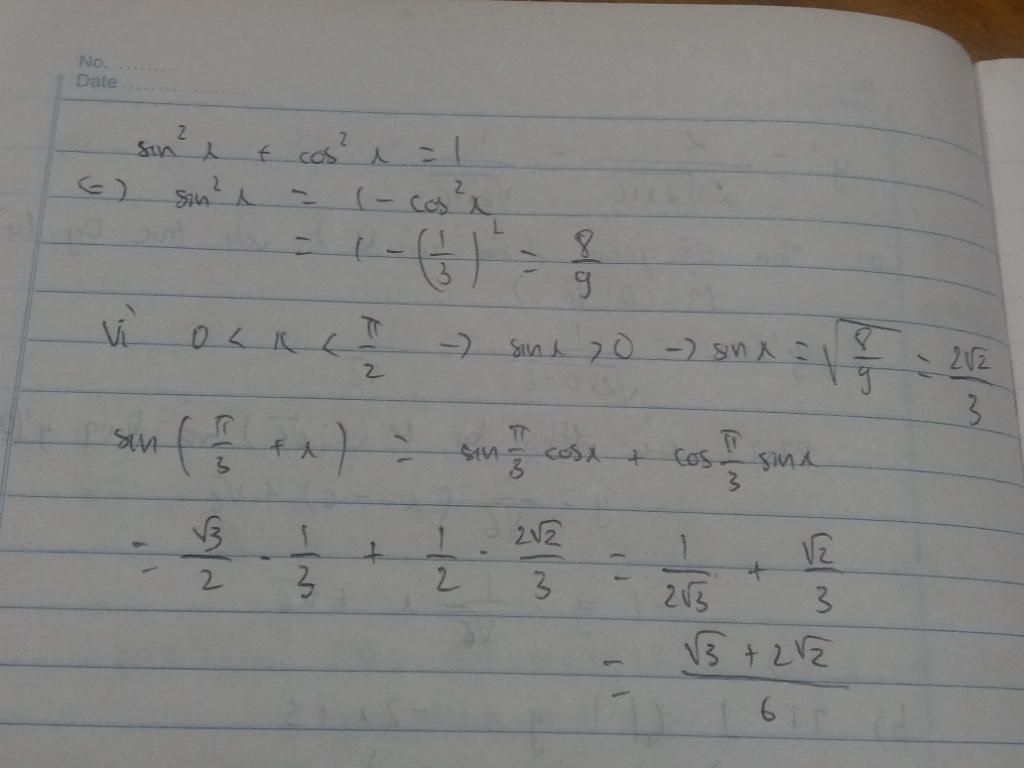 No. ..........
Date ......................
sin² x + cos² x = 1
(=) sin² x = 1 - cos² x
= 1 - (1/3)² = 8/9
Vì 0 < x < π/2 → sin x > 0 → sin x = √(8/9) = 2√2/3
sin (π/3 + x) = sin π/3 cos x + cos π/3 sin x
= √3/2 · 1/3 + 1/2 · 2√2/3 = 1/(2√3) + √2/3
= (√3 + 2√2)/6